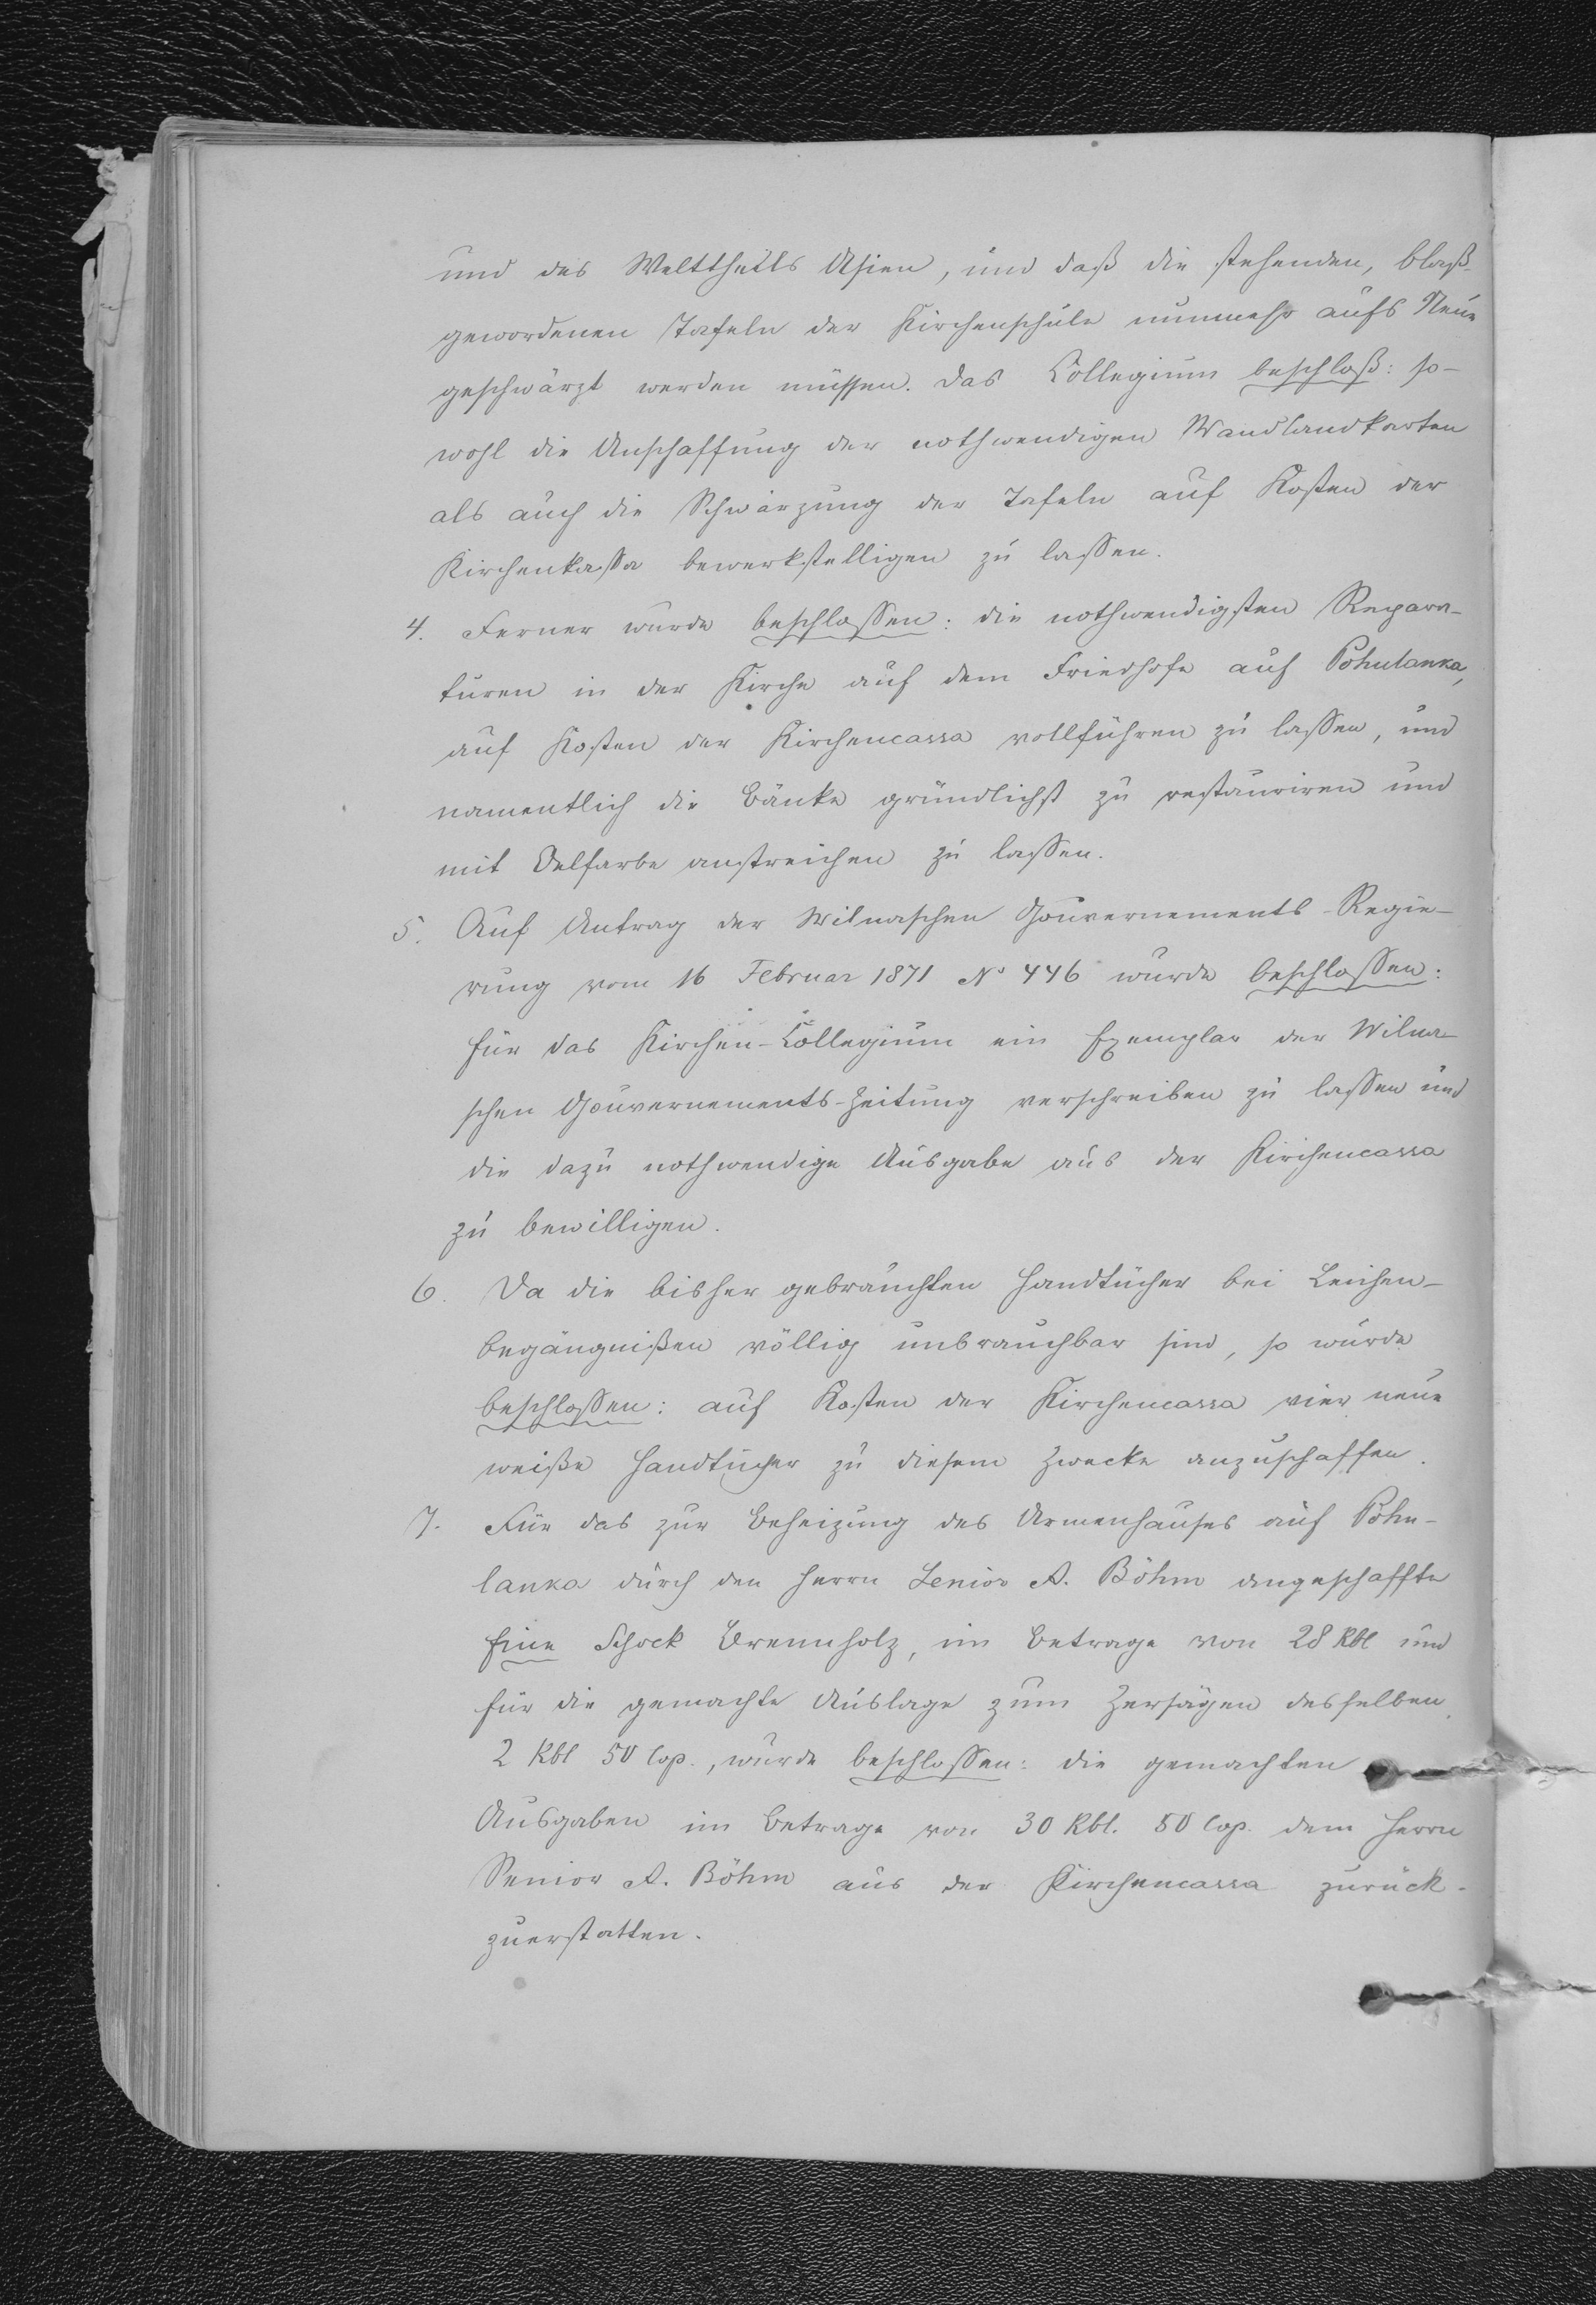 und des Welttheils Asien, und daß die stehenden, blaß-
gewordenen Tafeln der Kirchenschule nunmehr aufs Neue
geschwärzt werden müssen. Das Collegium beschloß: so-
wohl die Anschaffung der nothwendigen Wandlandkarten
als auch die Schwärzung der Tafeln auf Kosten der
Kirchenkassa bewerkstelligen zu lassen.
4. Ferner wurde beschlossen: die nothwendigsten Repara-
turen in der Kirche auf dem Friedhofe auf Pohulanka,
auf Kosten der Kirchencassa vollführen zu lassen, und
namentlich die Bänke gründlichst zu restauriren und
mit Oelfarbe anstreichen zu lassen.
5. Auf Antrag der Wilnaschen Gouvernements-Regie-
rung vom 16 Februar 1871 No 446 wurde beschlossen:
für das Kirchen-Collegium ein Exemplar der Wilna-
schen Gouvernements-Zeitung verschreiben zu lassen und
die dazu nothwendige Ausgabe aus der Kirchencassa
zu bewilligen.
6. Da die bisher gebrauchten Handtücher bei Leichen-
begängnißen völlig unbrauchbar sind, so wurde
beschlossen: auf Kosten der Kirchencassa vier neue
weiße Handtücher zu diesem Zwecke anzuschaffen.
7. Für das zur Beheizung des Armenhauses auf Pohu-
lanka durch den Herrn Senior A. Böhm angeschaffte
Eine Schock Brennholz, im Betrage von 28 Rbl und
für die gemachte Auslage zum Zersägen desselben
2 Rbl 50 Cop., wurde beschlossen: die gemachten
Ausgaben im Betrage von 30 Rbl. 50 Cop. dem Herrn
Senior A. Böhm aus der Kirchencassa zurück-
zuerstatten.